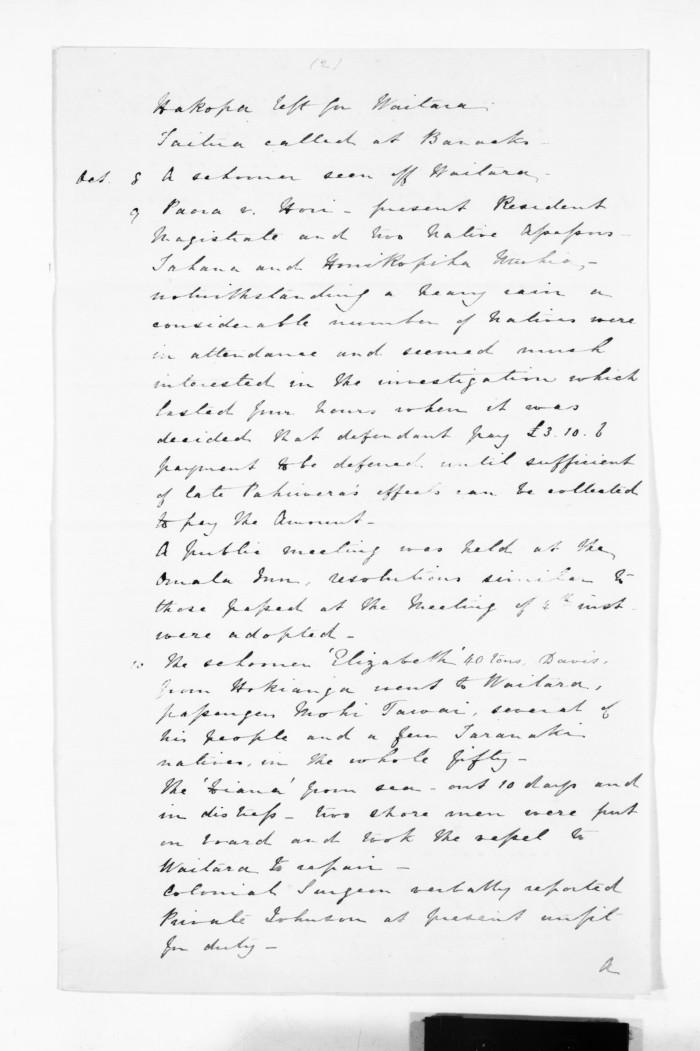 (2)
Hakopa left for Waitara.
Taitua called at Barracks -
Oct. 8 A schooner seen off Waitara -
9 Paora v. Hori - present Resident
Magistrate and two Native Assessors -
Tahana and Honikopiha -
notwithstanding a heavy rain a
considerable number of natives were
in attendance and seemed much
interested in the investigation which
lasted four hours when it was
decided that defendant pay £3.10.6
payment to be deferred until sufficient
of late effects can be collected
to pay the Amount -
A public meeting was held at the
Omata Inn, resolutions similar to
those passed at the Meeting of 4th inst
were adopted -
10 The schooner 'Elizabeth' 40 tons, Davis,
from Hokianga went to Waitara,
passengers Mohi Tawai, several of
his people and a few Taranaki
natives, in the whole fifty -
The 'Diana' from sea - out 10 days and
in distress - two shore men were put
on board and took the vessel to
Waitara to repair -
Colonial Surgeon verbally reported
Private Johnson at present unfit
for duty -
A